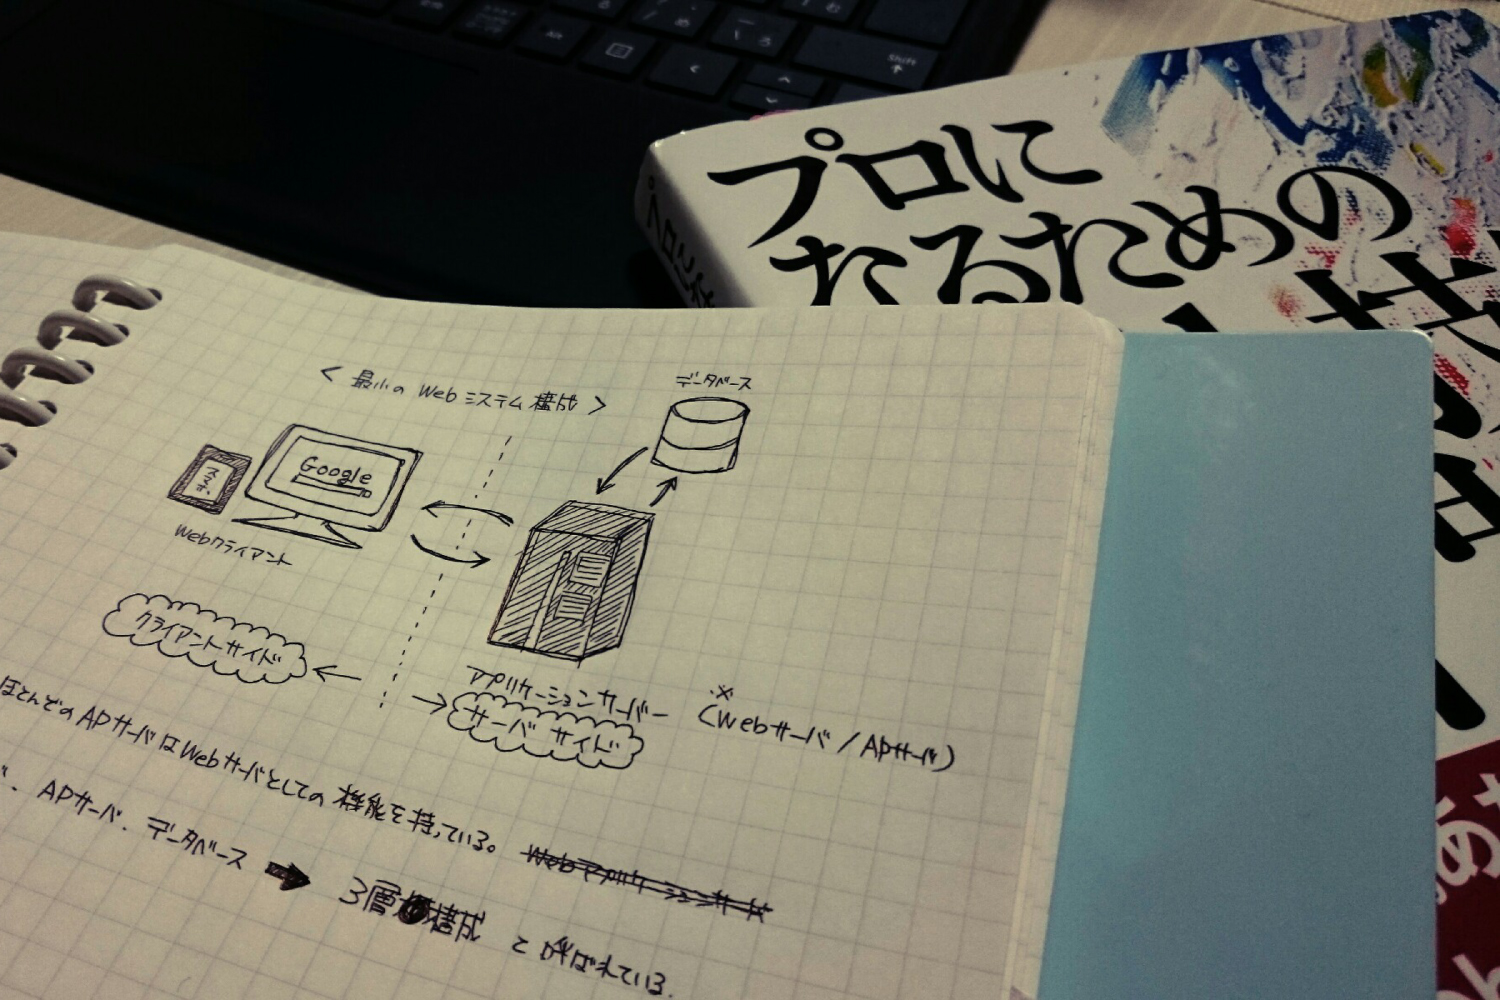 プロに
なるための
< 最小の Webシステム構成 >
データベース
Google
Webクライアント
クライアントサイド
アプリケーションサーバー
※
(Webサーバ / APサーバ)
サーバサイド
ほとんどのAPサーバはWebサーバとしての機能を持っている。
、APサーバ、データベース ➡ 3層構成 と呼ばれている。
SHIFT